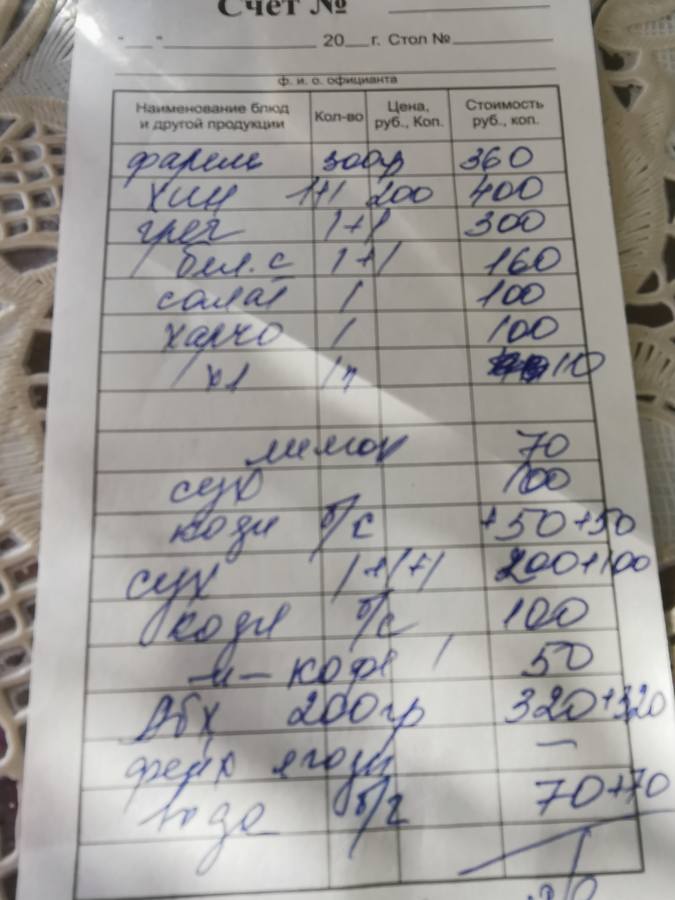 Счет № ____
"___"____________ 20___г. Стол №____
ф. и. о. официанта
Наименование блюд и другой продукции Кол-во Цена, руб., Коп. Стоимость руб., коп.
фарель 300гр 360
хин 1+1 200 400
греч 1+1 300
бел. с 1+1 160
салат 1 100
харчо 1 100
хл 1п 110
лимон 70
сух 100
коди б/с +50+50
сух 1+1+1 200+100
коди б/с 100
м-кофе 1 50
Абх 200гр 320+320
фейх ягоды —
вода б/г 70+70